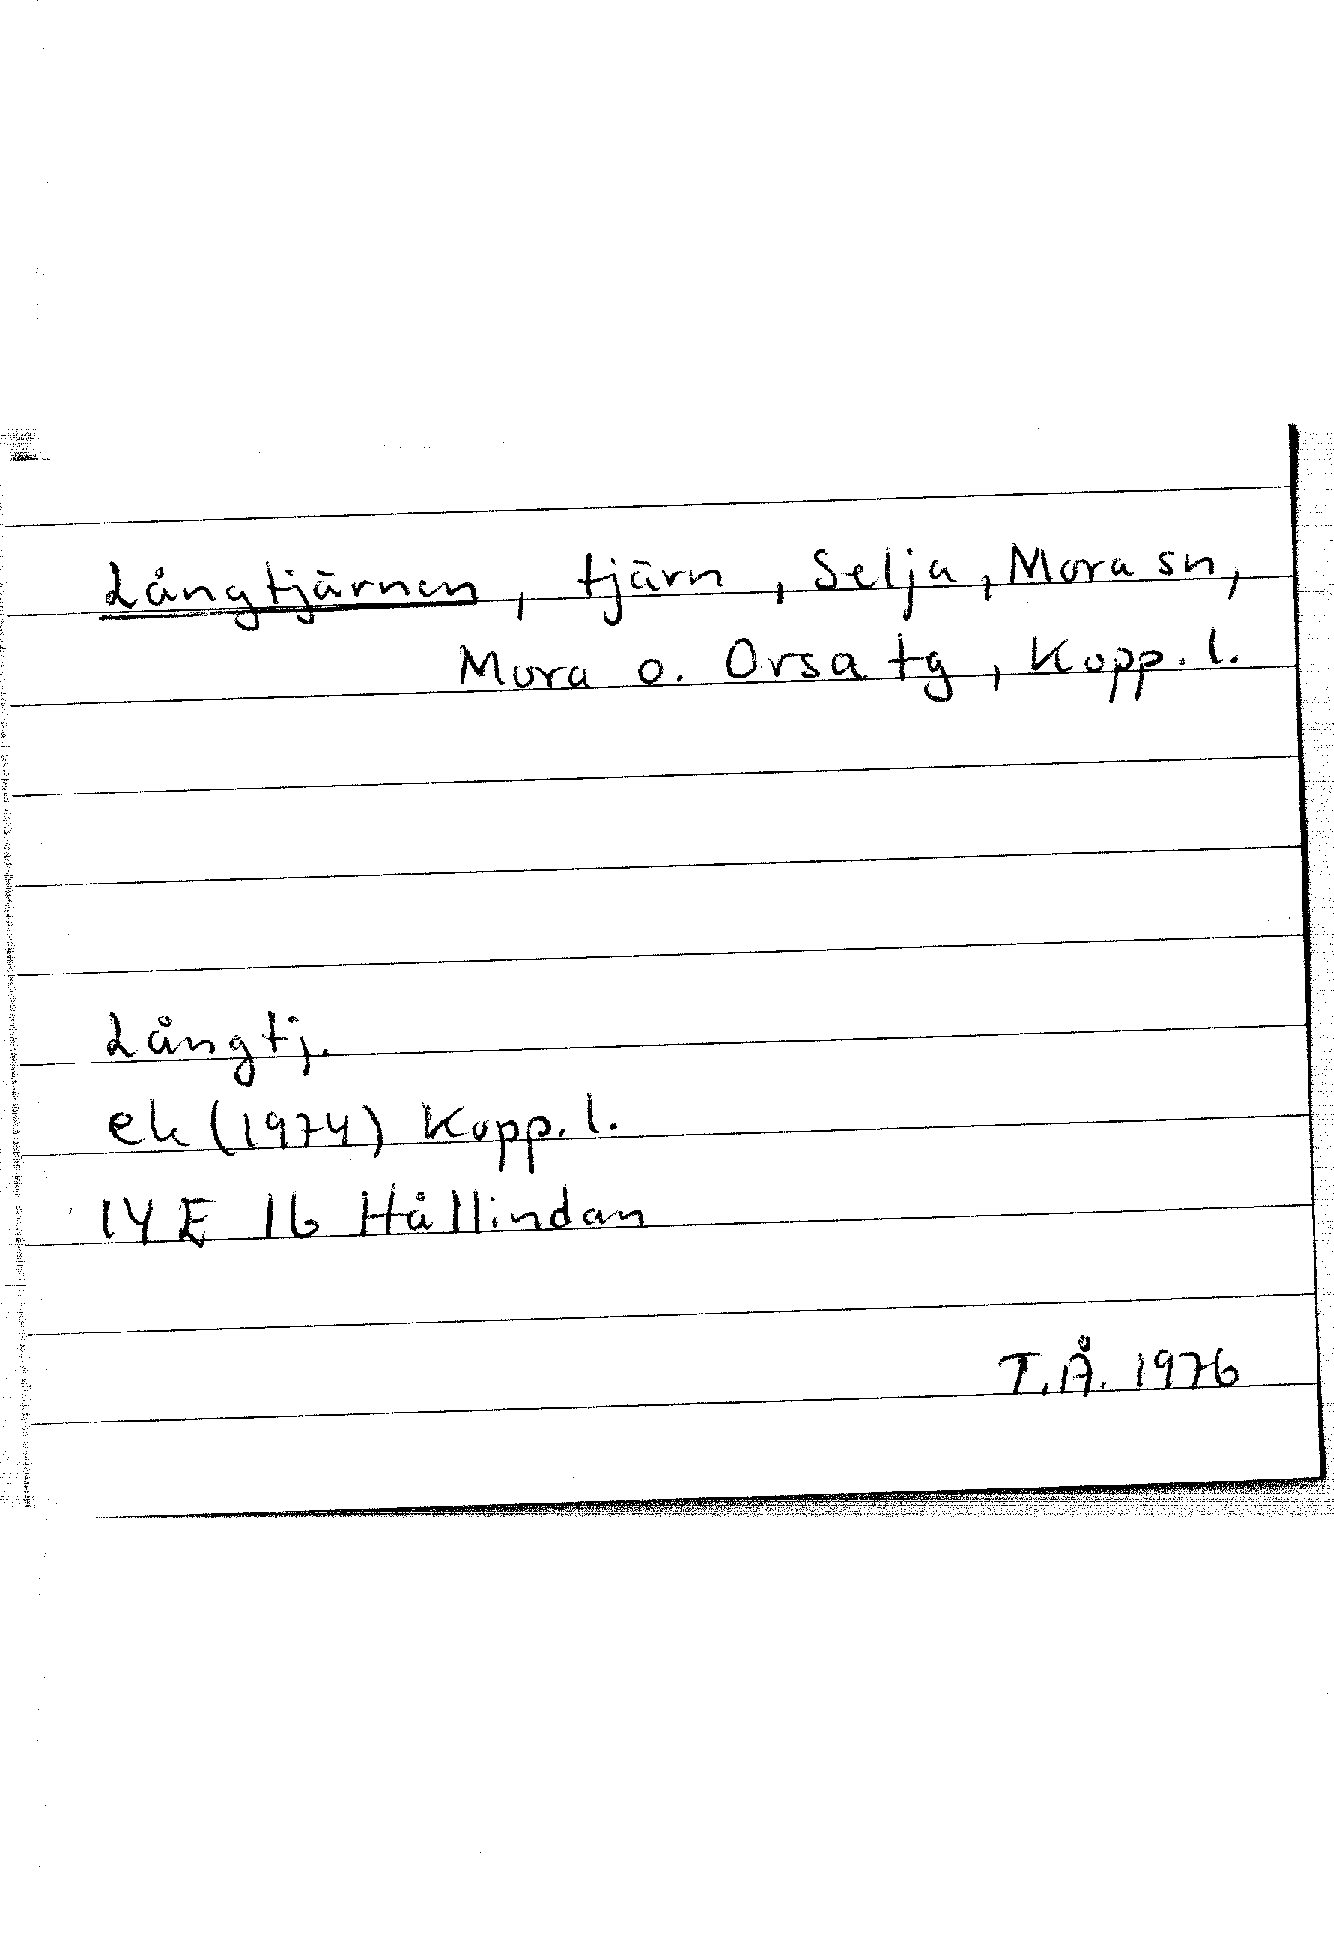 Långtjärnen, tjärn, Selja, Mora sn,
Mora o. Orsa tg, Kopp. l.
Långtj.
ek (1974) Kopp. l.
14 E 1b Hållindan
T.Å. 1976